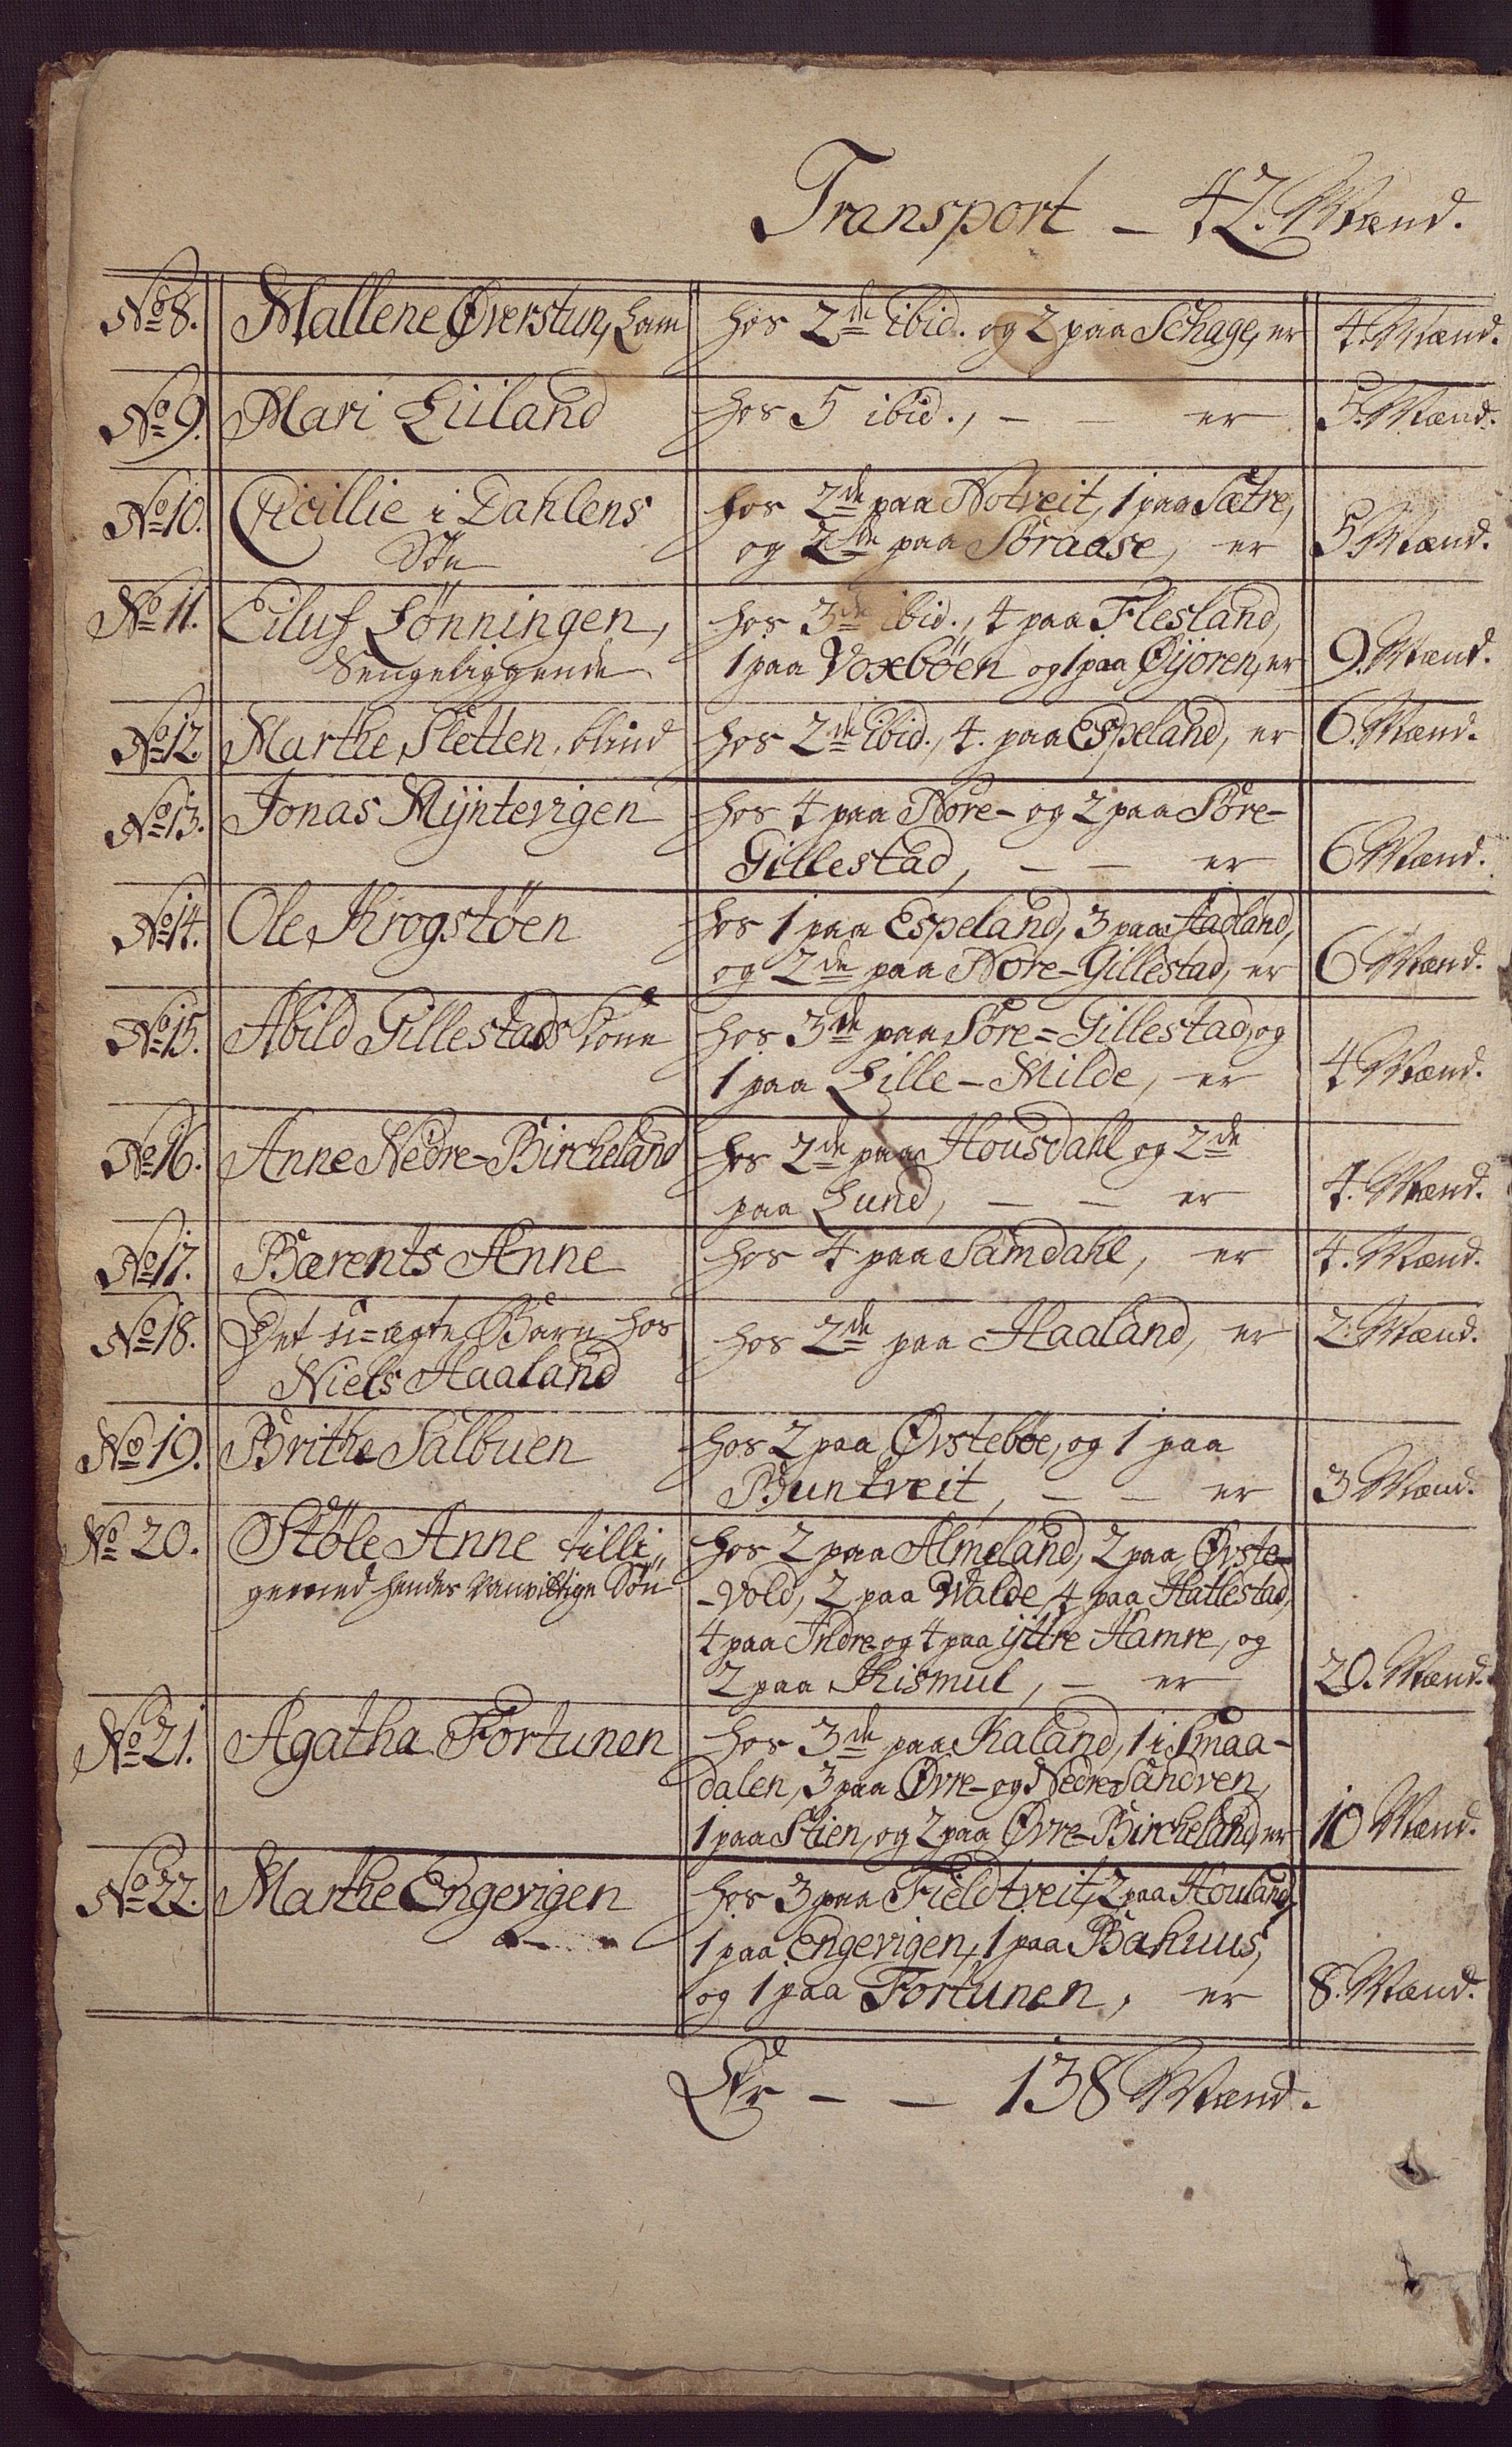 Transport – 42. Mænd.
No 8. Mallene Øverstun, Lam hos 2de ibid. og 2 paa Schage, er 4. Mænd.
No 9. Mari Liiland hos 5 ibid., – – er 5. Mænd.
No 10. Cicillie i Dahlens hos 2de paa Notveit, 1 paa Sætre,
Søn og 2de paa Søraase, er 5 Mænd.
No 11. Eiluf Lønningen, hos 3de ibid., 4 paa Flesland,
Sengeliggende 1 paa Voxbøen og 1 paa Øijoren, er 9. Mænd.
No 12. Marthe Sletten, blind hos 2de ibid., 4. paa Espeland, er 6. Mænd.
No 13. Jonas Mÿntevigen hos 4 paa Nore- og 2 paa Søre-
Gillestad, – – er 6 Mænd.
No 14. Ole Krogstøen hos 1 paa Espeland, 3 paa Stadland,
og 2de paa Nore-Gillestad, er 6 Mænd.
No 15. Abild Gillestads Kone hos 3de paa Søre=Gillestad, og
1 paa Lille-Milde, er 4 Mænd.
No 16. Anne Nedre-Bircheland hos 2de paa Housdahl og 2de
paa Lund, – – er 4. Mænd.
No 17. Bærents Anne hos 4 paa Samdahl, er 4. Mænd.
No 18. Det u=ægte Barn hos hos 2de paa Haaland, er 2. Mænd.
Niels Haaland
No 19. Brithe Salbuen hos 2 paa Øvstebøe, og 1 paa
Buntveit, – – er 3 Mænd.
No 20. Støle Anne tilli„ hos 2 paa Almeland, 2 paa Øvste-
gemed hendes vanvittige Søn -vold, 2 paa Walde, 4 paa Hatlestad,
4 paa Indre- og 4 paa ÿttre Hamre, og
2 paa Kismul, – er 20. Mænd.
No 21. Agatha Fortunen hos 3de paa Kaland, 1 i Smaa-
dalen, 3 paa Øvre- og Nedre Sandven,
1 paa Stien, og 2 paa Øvre-Bircheland, er 10 Mænd.
No 22. Marthe Engevigen hos 3 paa Fieldtveit, 2 paa Houland,
1 paa Engevigen, 1 paa Bahuus,
og 1 paa Fortunen, er 8. Mænd.
Er – – 138 Mænd.